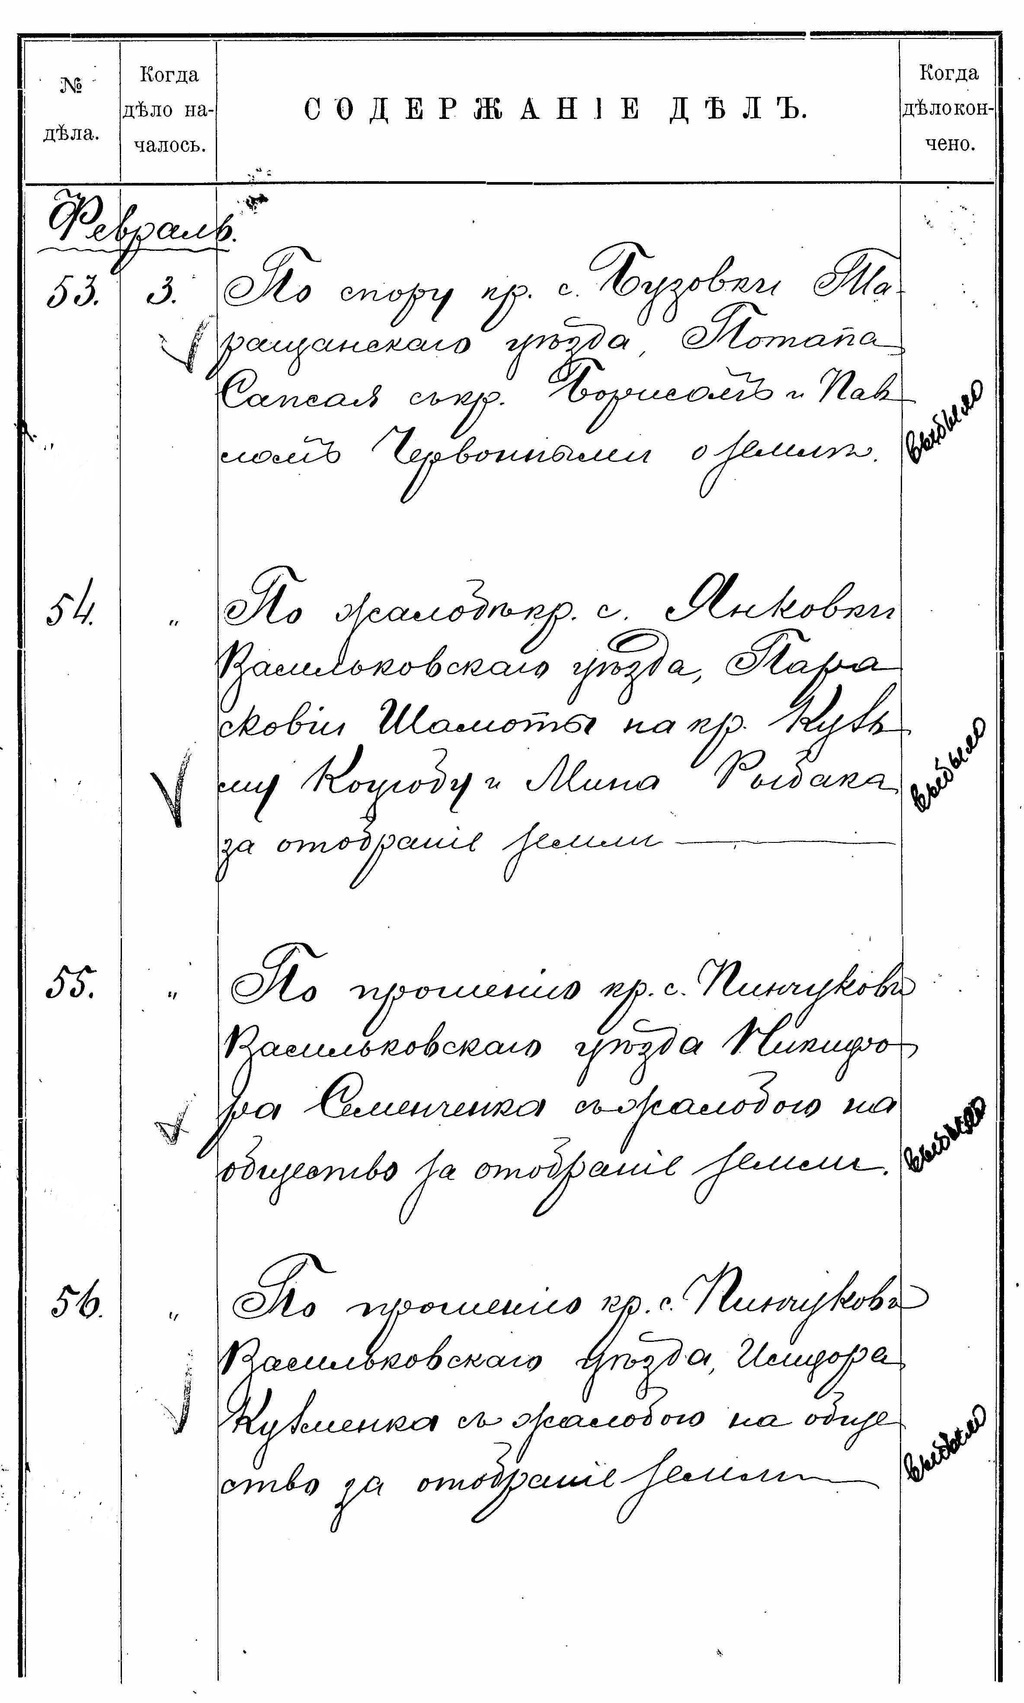 № дѣла.
Когда дѣло на-
чалось.
СОДЕРЖАНІЕ ДѢЛЪ.
Когда
дѣло кон-
чено.
Февраль.
53. 3. По спору кр. с. Бузовки Та-
ращанскаго уѣзда, Потапа
Сапсая съ кр. Борисомъ и Пав
ломъ Червонными о землѣ. выбыло
54. „ По жалобѣ кр. с. Янковки
Васильковскаго уѣзда, Пара
сковіи Шамоты на кр. Кузь
му Коцюбу и Мина Рыбака
за отобраніе земли выбыло
55. „ По прошенію кр. с. Пинчуковъ
Васильковскаго уѣзда Никифо
ра Семенченка съ жалобою на
общество за отобраніе земли. выбыло
56. „ По прошенію кр. с. Пинчуковъ
Васильковскаго уѣзда, Исидора
Кузменка съ жалобою на обще
ство за отобраніе земли выбыло